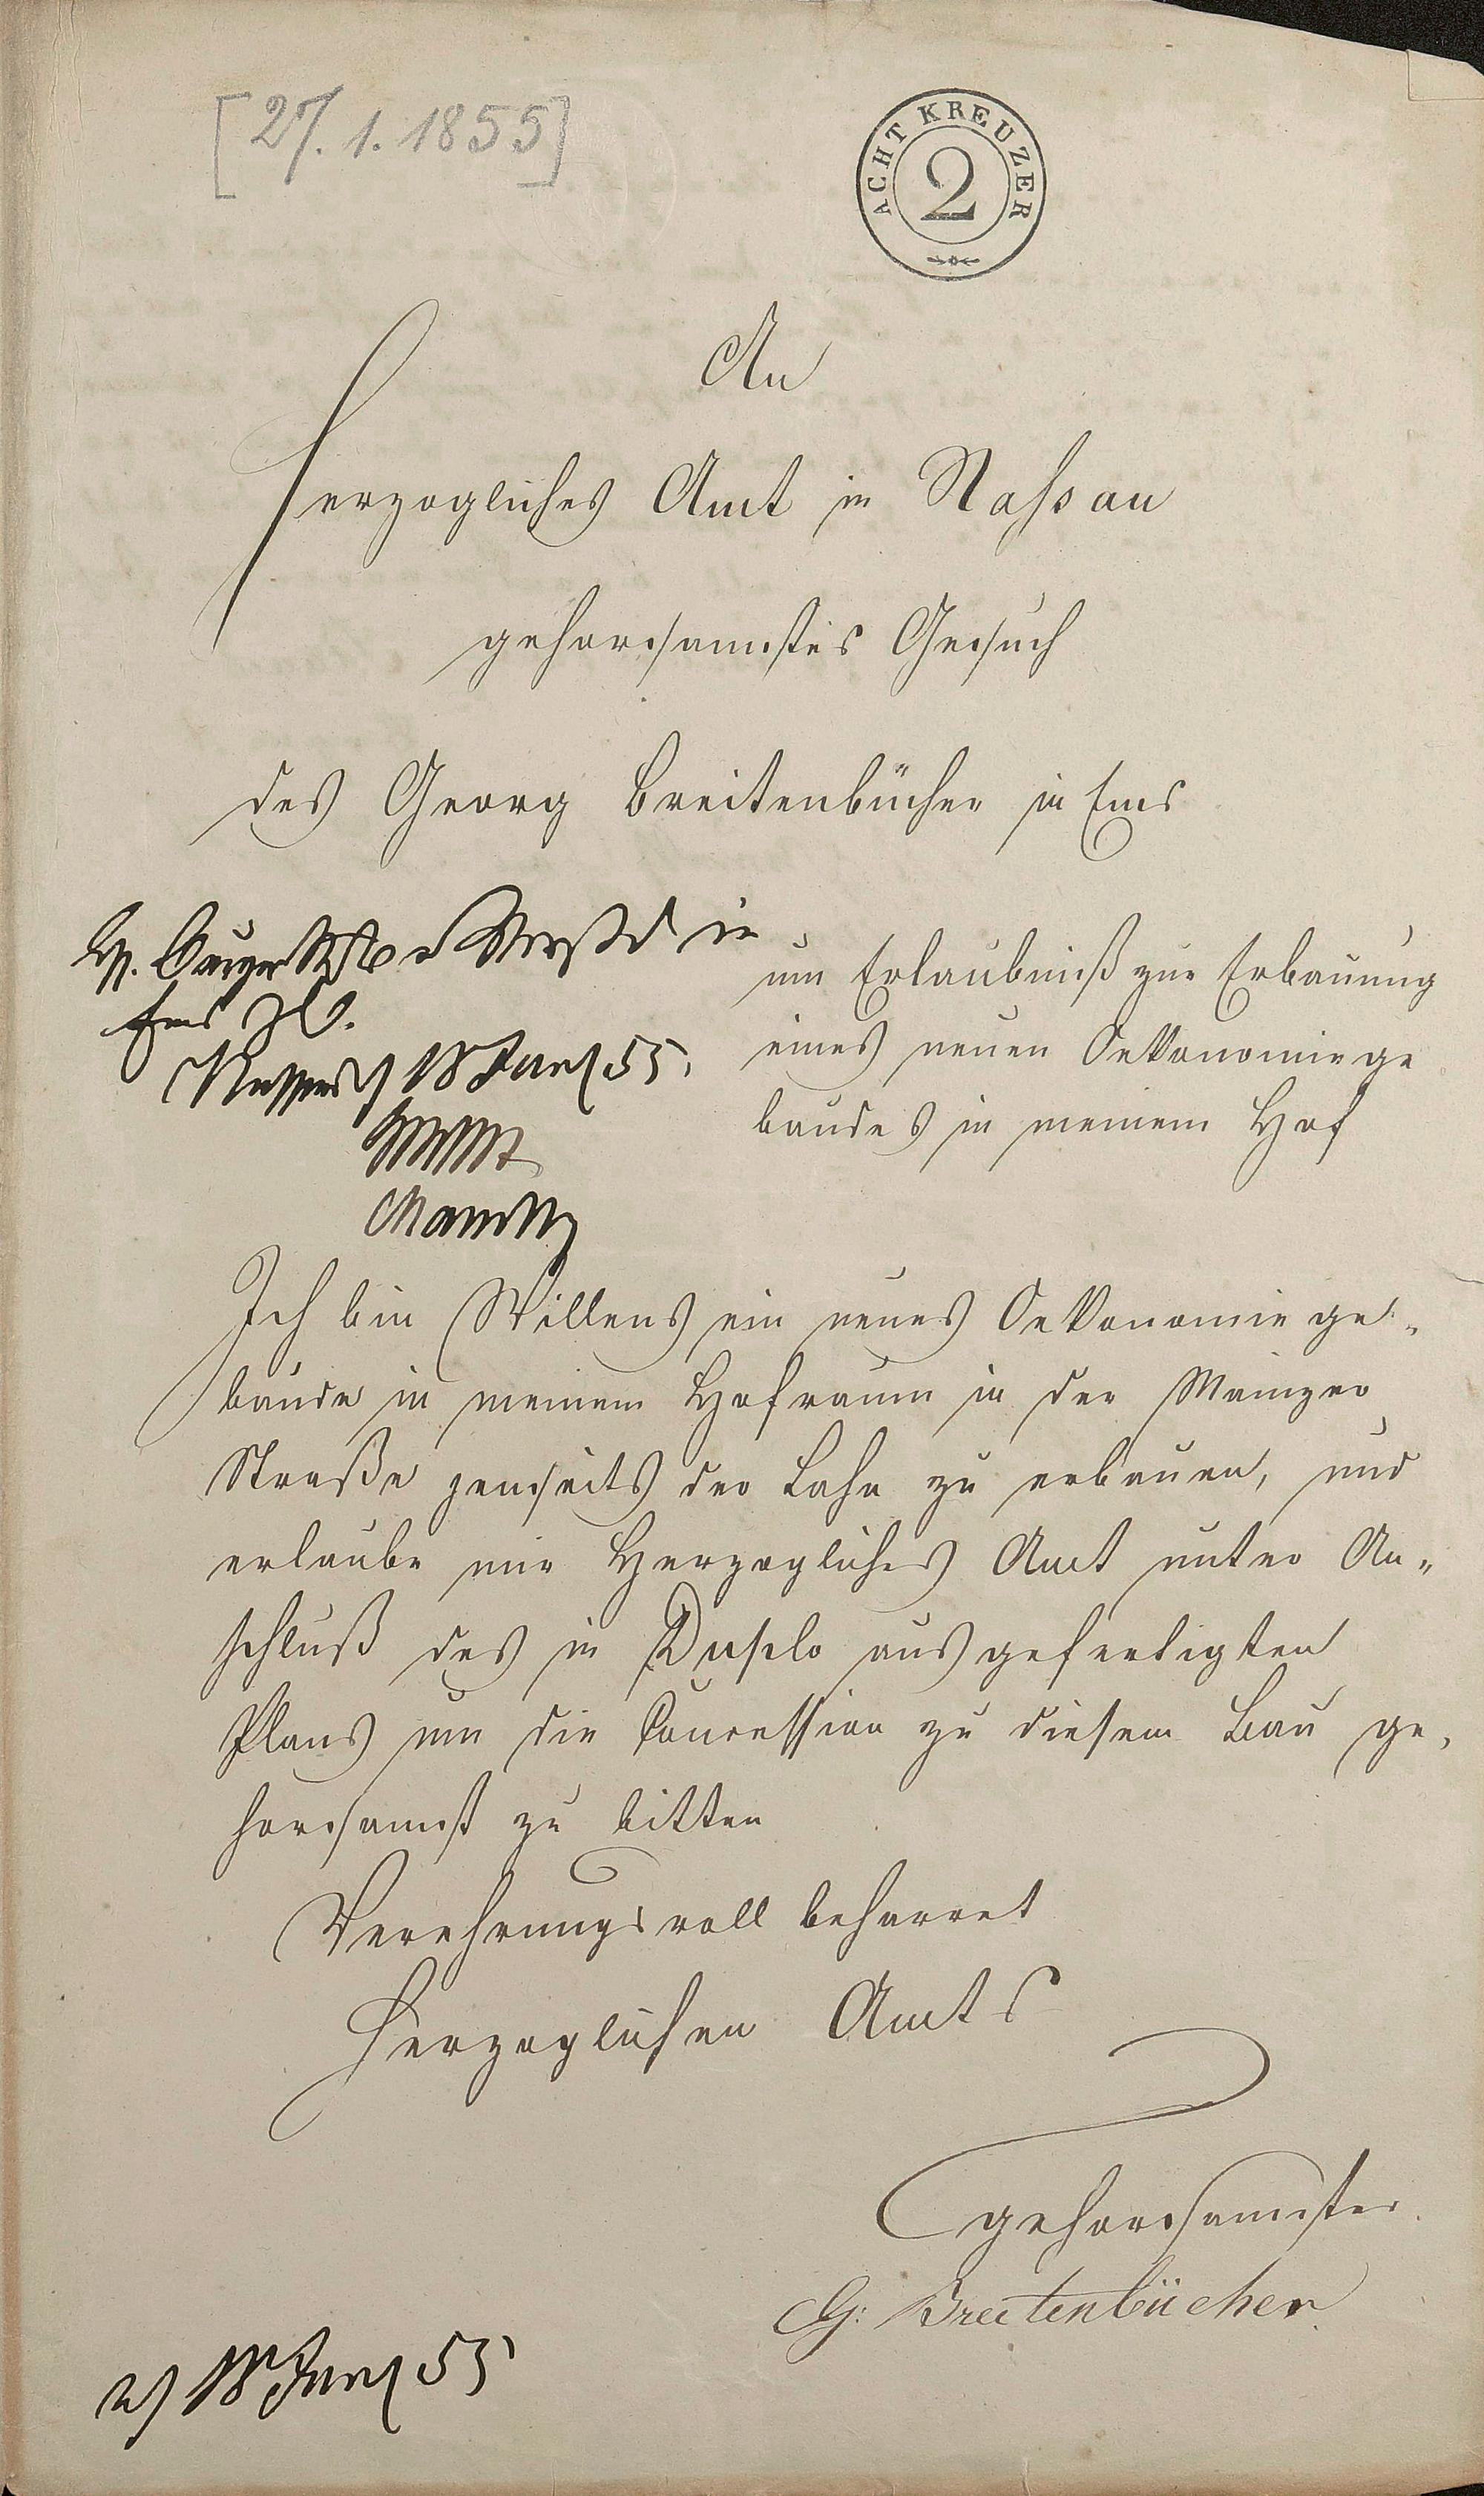 [27.1.1855]
ACHT KREUZER
2
An
Herzogliches Amt in Nassau
gehorsamstes Gesuch
des Georg Breitenbücher in Ems
in
Ems
Nassau 18 Jan 55.
um Erlaubniß zur Erbauung
eines neuen Oekonomiege
baudes in meinem Hof
Ich bin Willens ein neues Oekonomiege„
bäude in meinem Hofraum in der Mainzer
Straße jenseits der Lahn zu erbauen, und
erlaube mir Herzogliches Amt unter An„
schluß des in Duplo ausgefertigten
Plans um die Concession zu diesem Bau ge,
horsamst zu bitten
Verehrungsvoll beharret
Herzoglichen Amts
gehorsamster
G: Breitenbücher
18 Jan 55